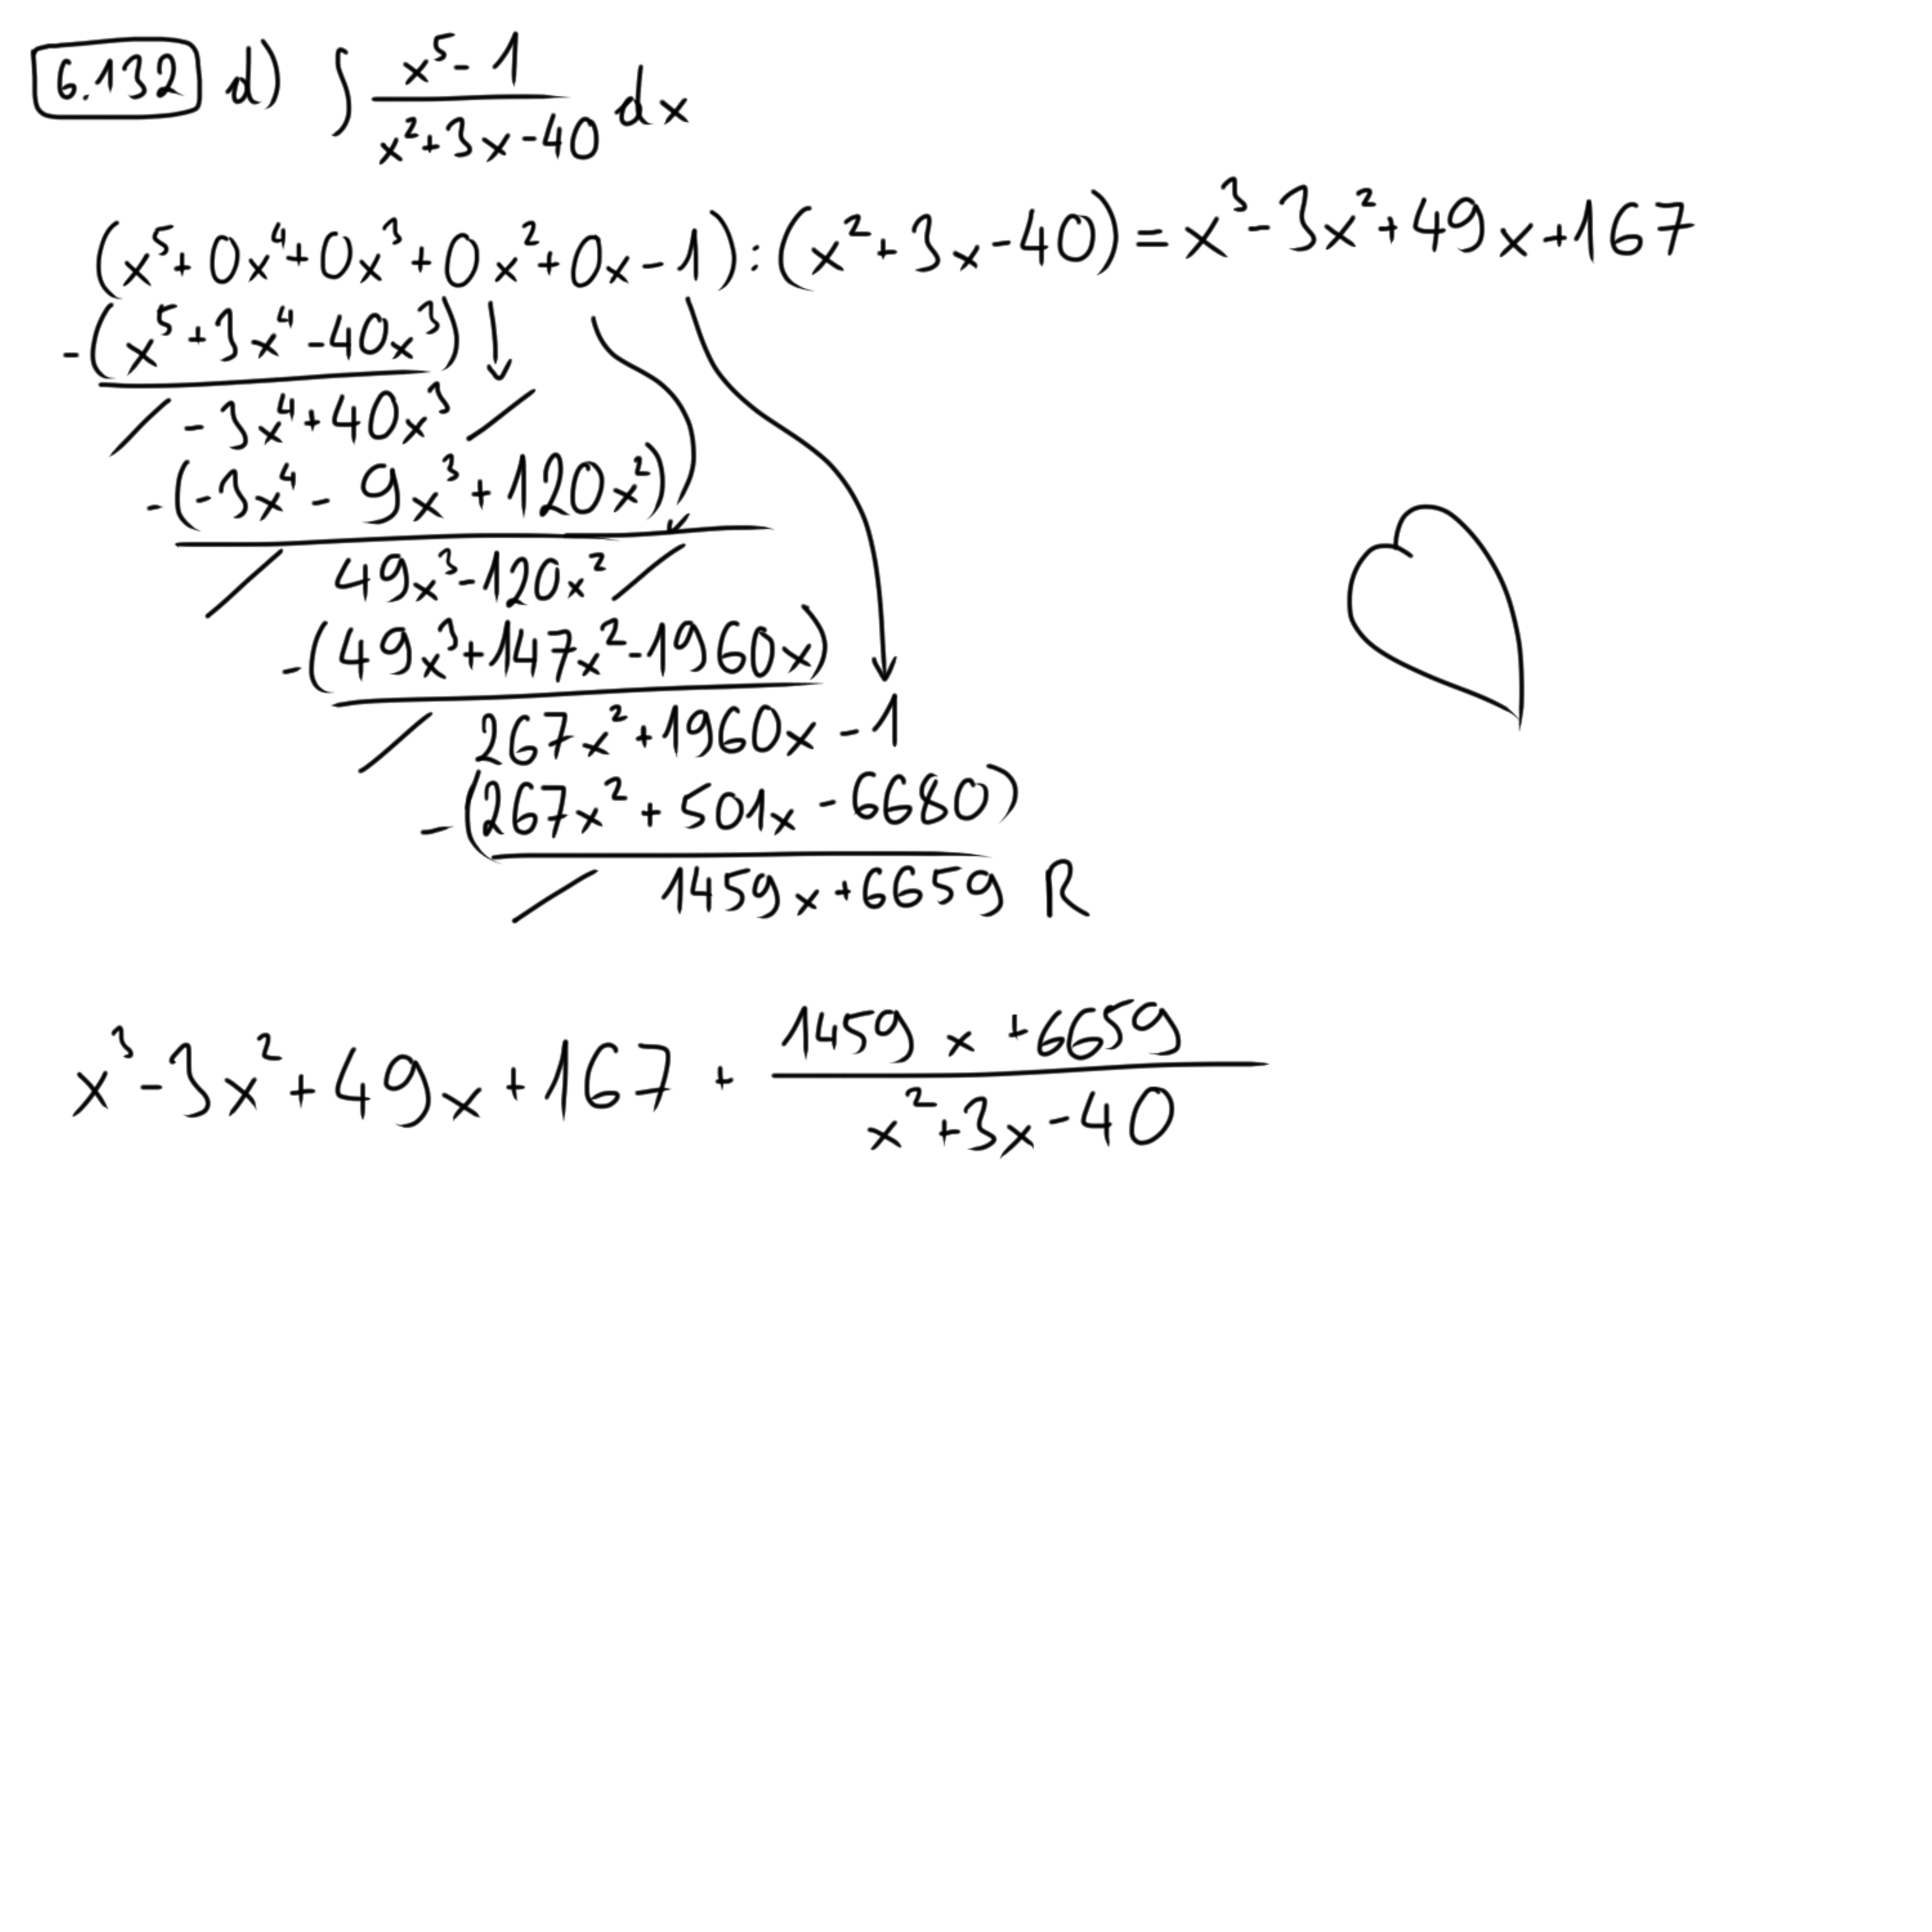 6.132 d) ∫ (x⁵ - 1)/(x² + 3x - 40) dx
(x⁵ + 0x⁴ + 0x³ + 0x² + 0x - 1) : (x² + 3x - 40) = x³ - 3x² + 49x + 167
-(x⁵ + 3x⁴ - 40x³)
/ - 3x⁴ + 40x³ /
-(-3x⁴ - 9x³ + 120x²)
/ 49x³ - 120x² /
-(49x³ + 147x² - 1960x)
/ 267x² + 1960x - 1
-(267x² + 501x - 6680)
/ 1459x + 6659 R
x³ - 3x² + 49x + 167 + (1459x + 6659)/(x² + 3x - 40)